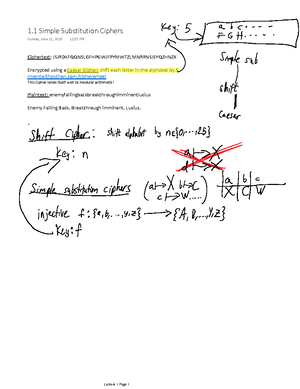 1.1 Simple Substitution Ciphers
Key: 5
a b c . . . .
F G H . . . .
Simple sub
Shift
Caesar
Encrypted using a Caesar Cipher: shift each letter in the alphabet by 5.
This cipher lends itself well to modular arithmetic!
Plaintext: enemyfallingbackbreakthroughimminentluidus
Enemy Falling Back, Breakthrough Imminent,
Shift Cipher: shift alphabet by n∈{0,...,25}
Key: n
a ↦ X
Simple substitution ciphers
(a ↦ X b ↦ C
c ↦ W .....)
a b c
X C W
injective f: {a, b, ..., y, z} → {A, B, ..., Y, Z}
Key: f
Lecture 1 Page 1